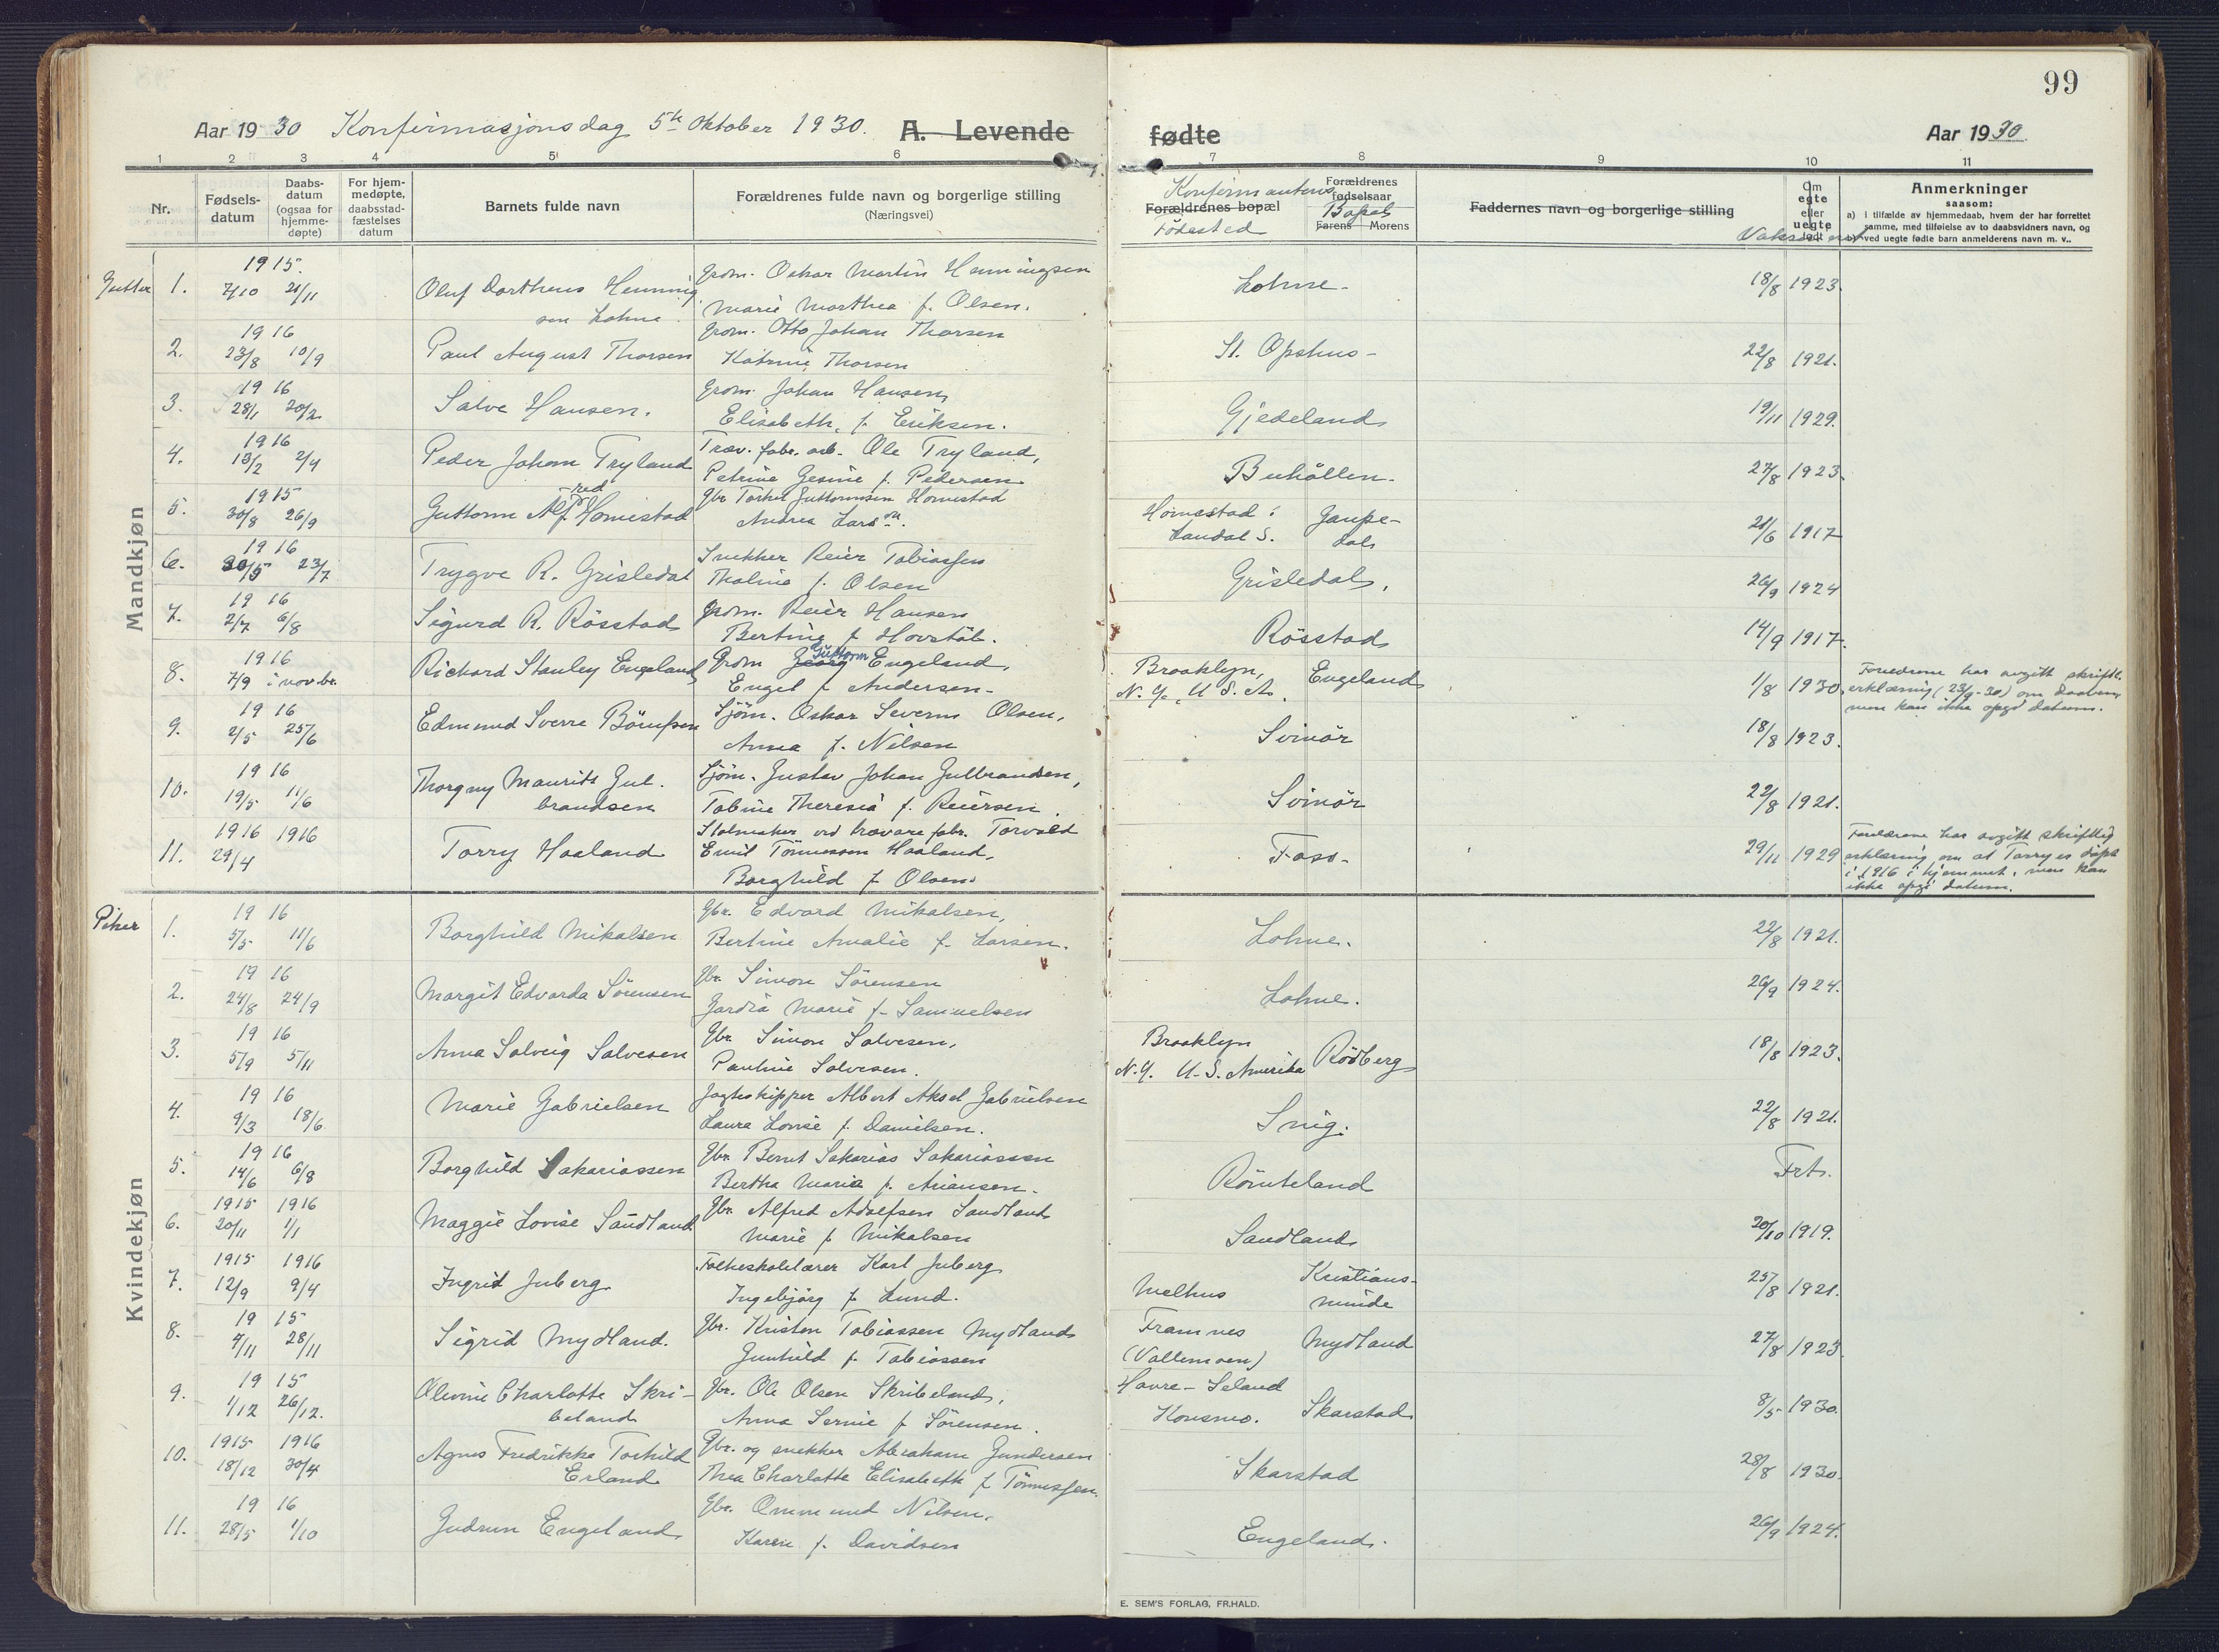 99
Aar 1930 Konfirmasjonsdag 5te Oktober 1930. A. Levende fødte Aar 1930
1 2 3 4 5 6 7 8 9 10 11
Nr. Fødsels-datum Daabs-datum (ogsaa for hjemme-døpte) For hjem-medøpte, daabsstad-fæstelses datum Barnets fulde navn Forældrenes fulde navn og borgerlige stilling (Næringsvei)
Konfirmantens Forældrenes bopæl Fødested Forældrenes fødselsaar Bopæl Farens Morens Faddernes navn og borgerlige stilling Om egte eller uegte født Anmerkninger saasom:
a) i tilfælde av hjemmedaab, hvem der har forrettet samme, med tilføielse av to daabsvidners navn, og
b) ved uegte fødte barn anmelderens navn m. v..
Mandkjøn
Gutter 1. 1915. 7/10 21/11 Oluf Dortheus Henning
sen Lohne. Grom. Oskar Martin Henningsen
Marie Marthea f. Olsen. Lohne- 18/8 1923.
2. 1916 23/8 10/9 Paul August Thorsen Grom. Otto Johan Thorsen
Katrine Thorsen St. Opshus- 22/8 1921.
3. 1916 28/1 20/2 Salve Hansen. Grom. Johan Hansen,
Elisabeth, f. Eriksen. Gjedeland 19/11 1929.
4. 1916 13/2 2/4 Peder Johan Tryland Træv. fabr. arb. Ole Tryland,
Petrine Gesine f. Pedersen Buhållen. 27/8 1923.
5. 1915 30/8 26/9 Guttorm Alfred Homestad Gbr Torkel Guttormsen Homestad
Andrea Lars dtr. Homestad i
Laudal S. Gaupe-
dal 20/6 1917
6. 1916 30/5 23/7 Trygve R. Grisledal Snekker Reier Tobiassen
Thaline f. Olsen Grisledal, 26/9 1924
7. 1916 2/7 6/8 Sigurd R. Rösstad Grom. Reier Hansen
Bertine f Hovstöl. Rösstad 14/9 1917.
8. 1916 7/9 i novbr. Richard Stanley Engeland Grom Georg Guttorm Engeland,
Engel f Andersen- Brooklyn,
N. Y., U. S. A. Engeland 1/8 1930. Foreldrene har avgitt skriftl.
erklæring (23/9-30) om daaben,
men kan ikke opgi datum.
9. 1916 2/5 25/6 Edmund Sverre Börufsen Sjöm. Oskar Severin Olsen,
Anna f. Nilsen Svinör 18/8 1923.
10. 1916 19/5 11/6 Thorguy Maurits Gul-
brandsen Sjöm. Gustav Johan Gulbrandsen,
Tobine Theresia f. Reiersen Svinör 22/8 1921.
11. 1916 1916 29/4 Torry Haaland Stolmaker ved trævarefabr. Torvald
Emil Tönnessen Haaland,
Borghild f Olsen. Foss- 29/11 1929 Foreldrene har avgitt skriftlig
erklæring om at Torry er döpt
i 1916 i hjemmet, men kan
ikke opgi datum.
Kvindekjøn
Piker 1. 1916 5/5 11/6 Borghild Mikalsen Gbr. Edvard Mikalsen,
Bertine Amalie f. Larsen. Lohne. 22/8 1921.
2. 1916 24/8 24/9 Margit Edvarda Sörensen Gbr. Simon Sörensen
Jardia Marie f- Samuelsen Lohne. 26/9 1924.
3. 1916 5/9 5/11 Anna Solveig Salvesen Gbr. Simon Salvesen,
Pauline Salvesen. Brooklyn
N.Y. U.S. Amerika Rödberg 18/8 1923.
4. 1916 9/3 18/6. Marie Gabrielsen Jagteskipper Albert Aksel Gabrielsen
Laura Lovise f. Danielsen. Snig. 22/8 1921.
5. 1916 14/6 6/8 Borghild Sakariassen Gbr. Bernt Sakarias Sakariassen
Bertha Maria f. Ariansen. Römteland Frt.
6. 1915 1916 20/11 1/1 Maggie Lovise Sandland Gbr. Alfred Adolfsen Sandland
Marie f Mikalsen Sandland 20/10 1919.
7. 1915 1916 12/9 9/4 Ingrid Juberg Folkeskolelærer Karl Juberg
Ingebjörg f Lund. Melhus Kristians-
minde 25/8 1921.
8. 1915 4/11 28/11 Sigrid Mydland. Gbr. Kristen Tobiassen Mydland
Gunhild f. Tobiassen Framnes
(Vallemoen) Mydland 27/8 1923.
9. 1915 1/12 26/12. Olevine Charlotte Skri-
beland Gbr. Ole Olsen Skribeland,
Anna Sernie f Sörensen. Høvre- Seland
Konsmo. Skarstad 8/5 1930.
10. 1915 1916 18/12 30/4 Agnes Fredrikke Torhild
Erland Gbr. og snekker Abraham Gundersen
Thea Charlotte Elisabeth f Tönnessen. Skarstad 28/8 1930.
11. 1916 28/5 1/10 Gudrun Engeland Gbr. Ommund Nilsen,
Karen f. Davidsen Engeland. 26/9 1924.
E. SEM'S FORLAG, FR.HALD.